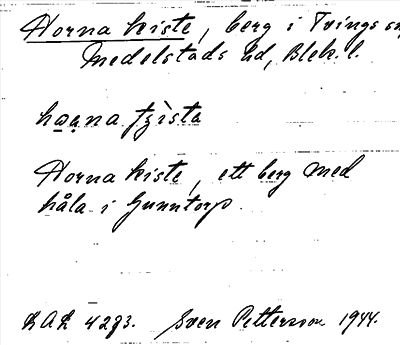 Horna kiste, berg i Tvings sn,
Medelstads hd, Blek. l.
Horna kiste, ett berg med
håla i Gunntorp.
LAL 4283. Sven Pettersson 1944.